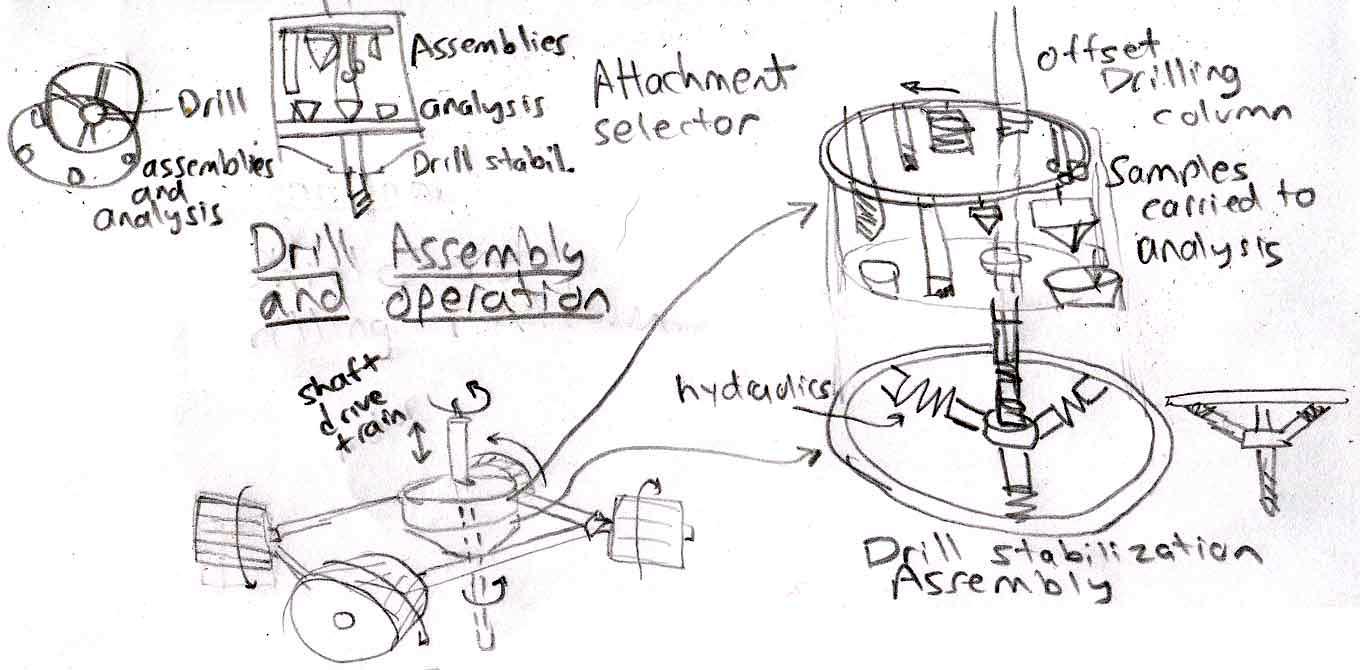 Drill
assemblies
and
analysis
Assemblies
analysis
Drill stabil.
Attachment
selector
offset
Drilling
column
Samples
carried to
analysis
Drill Assembly
and operation
shaft
drive
train
hydraulics
Drill stabilization
Assembly